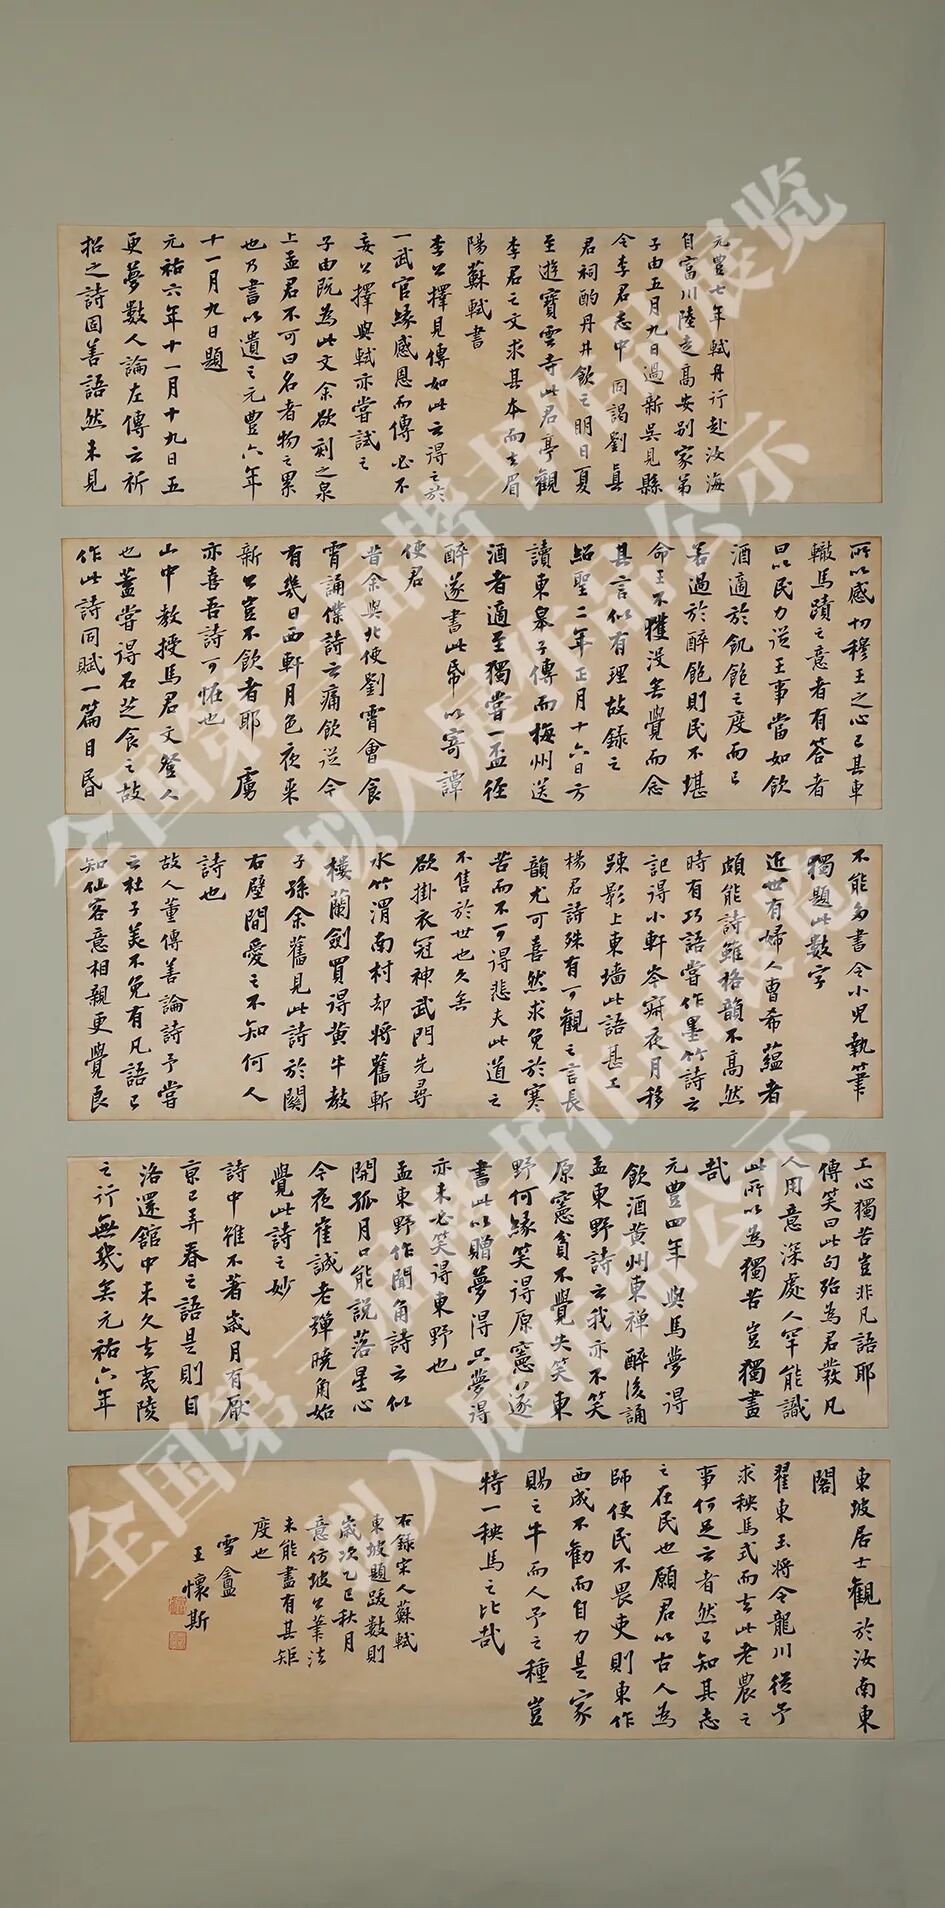 元豐七年軾舟行赴汝海
自富川陸走高安別家弟
子由五月九日過新吳見縣
令李君志中同謁劉真
君祠酌丹井飲之明日夏
至遊寶雲寺此君亭觀
李君之文求其本而去眉
陽蘇軾書
李公擇見傳如此云得之於
一武官緣感恩而傳必不
妄公擇與軾亦嘗試之
子由既為此文余欲刻之泉
上孟君不可曰名者物之累
也乃書以遺之元豐六年
十一月九日題
元祐六年十一月十九日五
更夢數人論左傳云祈
招之詩固善語然未見
所以感切穆王之心已其車
轍馬蹟之意者有答者
曰以民力從王事當如飲
酒適於飢飽之度而已
若過於醉飽則民不堪
命王不獲沒矣覺而念
其言似有理故錄之
紹聖二年正月十六日方
讀東皋子傳而梅州送
酒者適至獨嘗一盃徑
醉遂書此帋以寄譚
使君
昔余與北使劉霄會食
霄誦僕詩云痛飲從今
有幾日西軒月色夜來
新公豈不飲者耶虜
亦喜吾詩可怪也
山中教授馬君文登人
也蓋嘗得石芝食之故
作此詩同賦一篇目昏
不能多書令小兒執筆
獨題此數字
近世有婦人曹希蘊者
頗能詩雖格韻不高然
時有巧語嘗作墨竹詩云
記得小軒岑寂夜月移
踈影上東墻此語甚工
楊君詩殊有可觀之言長
韻尤可喜然求免於寒
苦而不可得悲夫此道之
不售於世也久矣
欲掛衣冠神武門先尋
水竹渭南村却將舊斬
樓蘭劍買得黃牛教
子孫余舊見此詩於關
右壁間愛之不知何人
詩也
故人董傳善論詩予嘗
云杜子美不免有凡語已
知仙客意相親更覺良
工心獨苦豈非凡語耶
傳笑曰此句殆為君發凡
人用意深處人罕能識
此所以為獨苦豈獨畫
哉
元豐四年與馬夢得
飲酒黃州東禪醉後誦
孟東野詩云我亦不笑
原憲貧不覺失笑東
野何緣笑得原憲遂
書此以贈夢得只夢得
亦未必笑得東野也
孟東野作聞角詩云似
開孤月口能說落星心
今夜崔誠老彈曉角始
覺此詩之妙
詩中雖不著歲月有厭
京已弄春之語是則自
洛還館中未久去夷陵
之行無幾矣元祐六年
東坡居士觀於汝南東
閣
翟東玉將令龍川從予
求秧馬式而去此老農之
事何足云者然已知其志
之在民也願君以古人為
師使民不畏吏則東作
西成不勸而自力是家
賜之牛而人予之種豈
特一秧馬之比哉
右錄宋人蘇軾
東坡題跋數則
歲次乙巳秋月
意仿坡公筆法
未能盡有其矩
度也
雪盦
王懷斯
全国第三届册页书法作品展览
拟入展作品公示